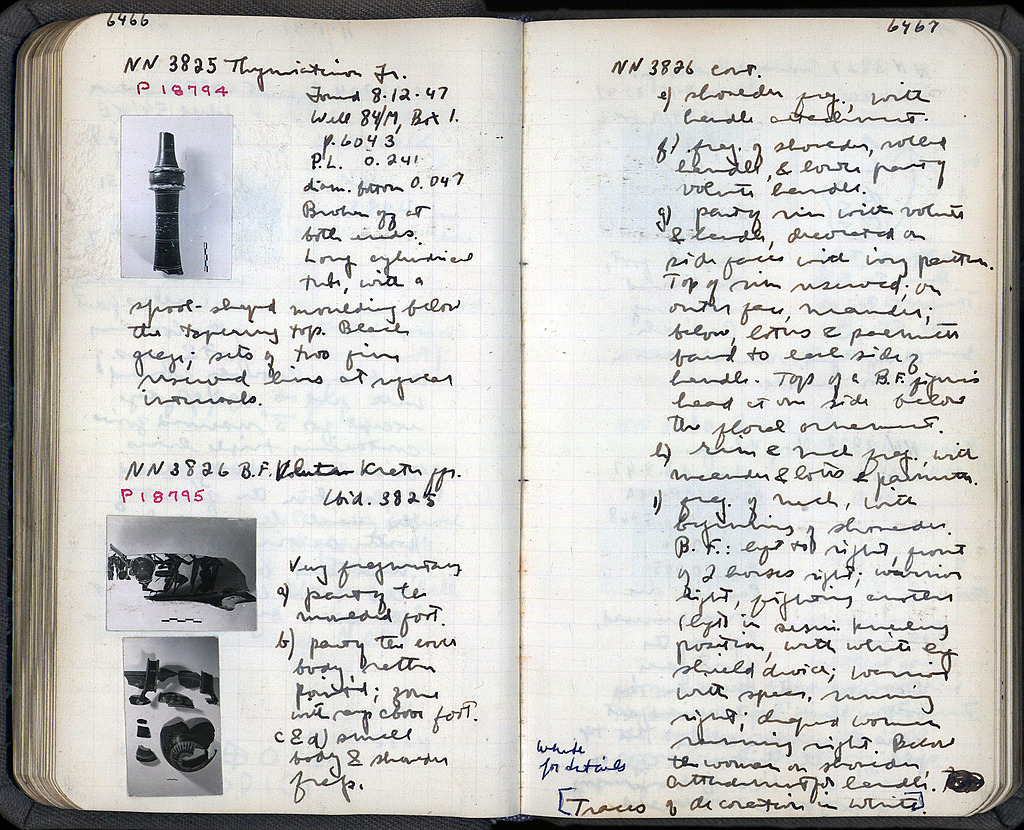 6466
NN 3825 Thymiaterion Fr.
P 18794
Found 8-12-47
Well 84/M, Box 1.
p. 6043
P.L. 0.241
diam. bottom 0.047
Broken off at
both ends.
Long cylindrical
tube, with a
spool-shaped moulding below
the tapering top. Black
glaze; sets of two fine
reserved lines at regular
intervals.
NN 3826 B.F. Volute Krater frs.
P 18795
Ibid. 3825
Very fragmentary
a) part of the
moulded foot.
b) part of the lower
body, rather
pointed; zone
with rays above foot.
c & d) small
body & shoulder
frags.
6467
NN 3826 cont.
e) shoulder frag., with
handle attachment.
f) frag. of shoulder, rolled
handle, & lower part of
volute handle.
g) part of rim with volute
& handle, decorated on
side faces with ivy pattern.
Top of rim reserved; on
outer face, meander;
below, lotus & palmette
band to each side of
handle. Top of a B.F. figure's
head at one side below
the floral ornament.
h) rim & neck frag., with
meander & lotus & palmette.
i) frag. of neck, with
beginning of shoulder.
B.F.: left to right, front
of 2 horses right; warrior
right, fighting another
(left) in semi kneeling
position, with white leg
shield device; warrior
with spear, running
right; draped woman
running right. Below
the woman on shoulder,
attachment for handle.
white
for details
[Traces of decoration in white]